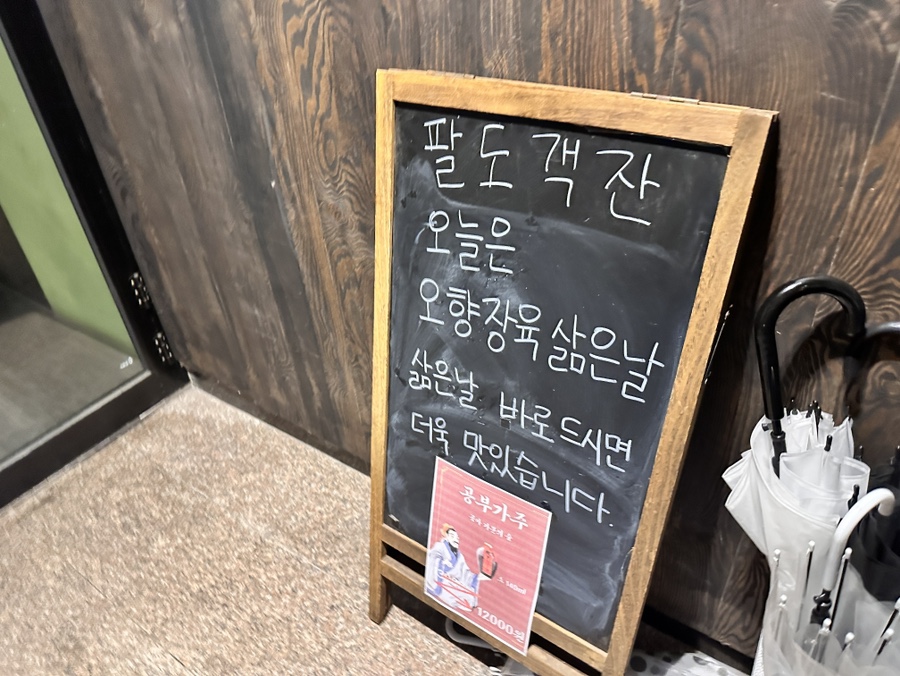 팔도객잔
오늘은
오향장육 삶은날
삶은날 바로 드시면
더욱 맛있습니다.
공부가주
12000원